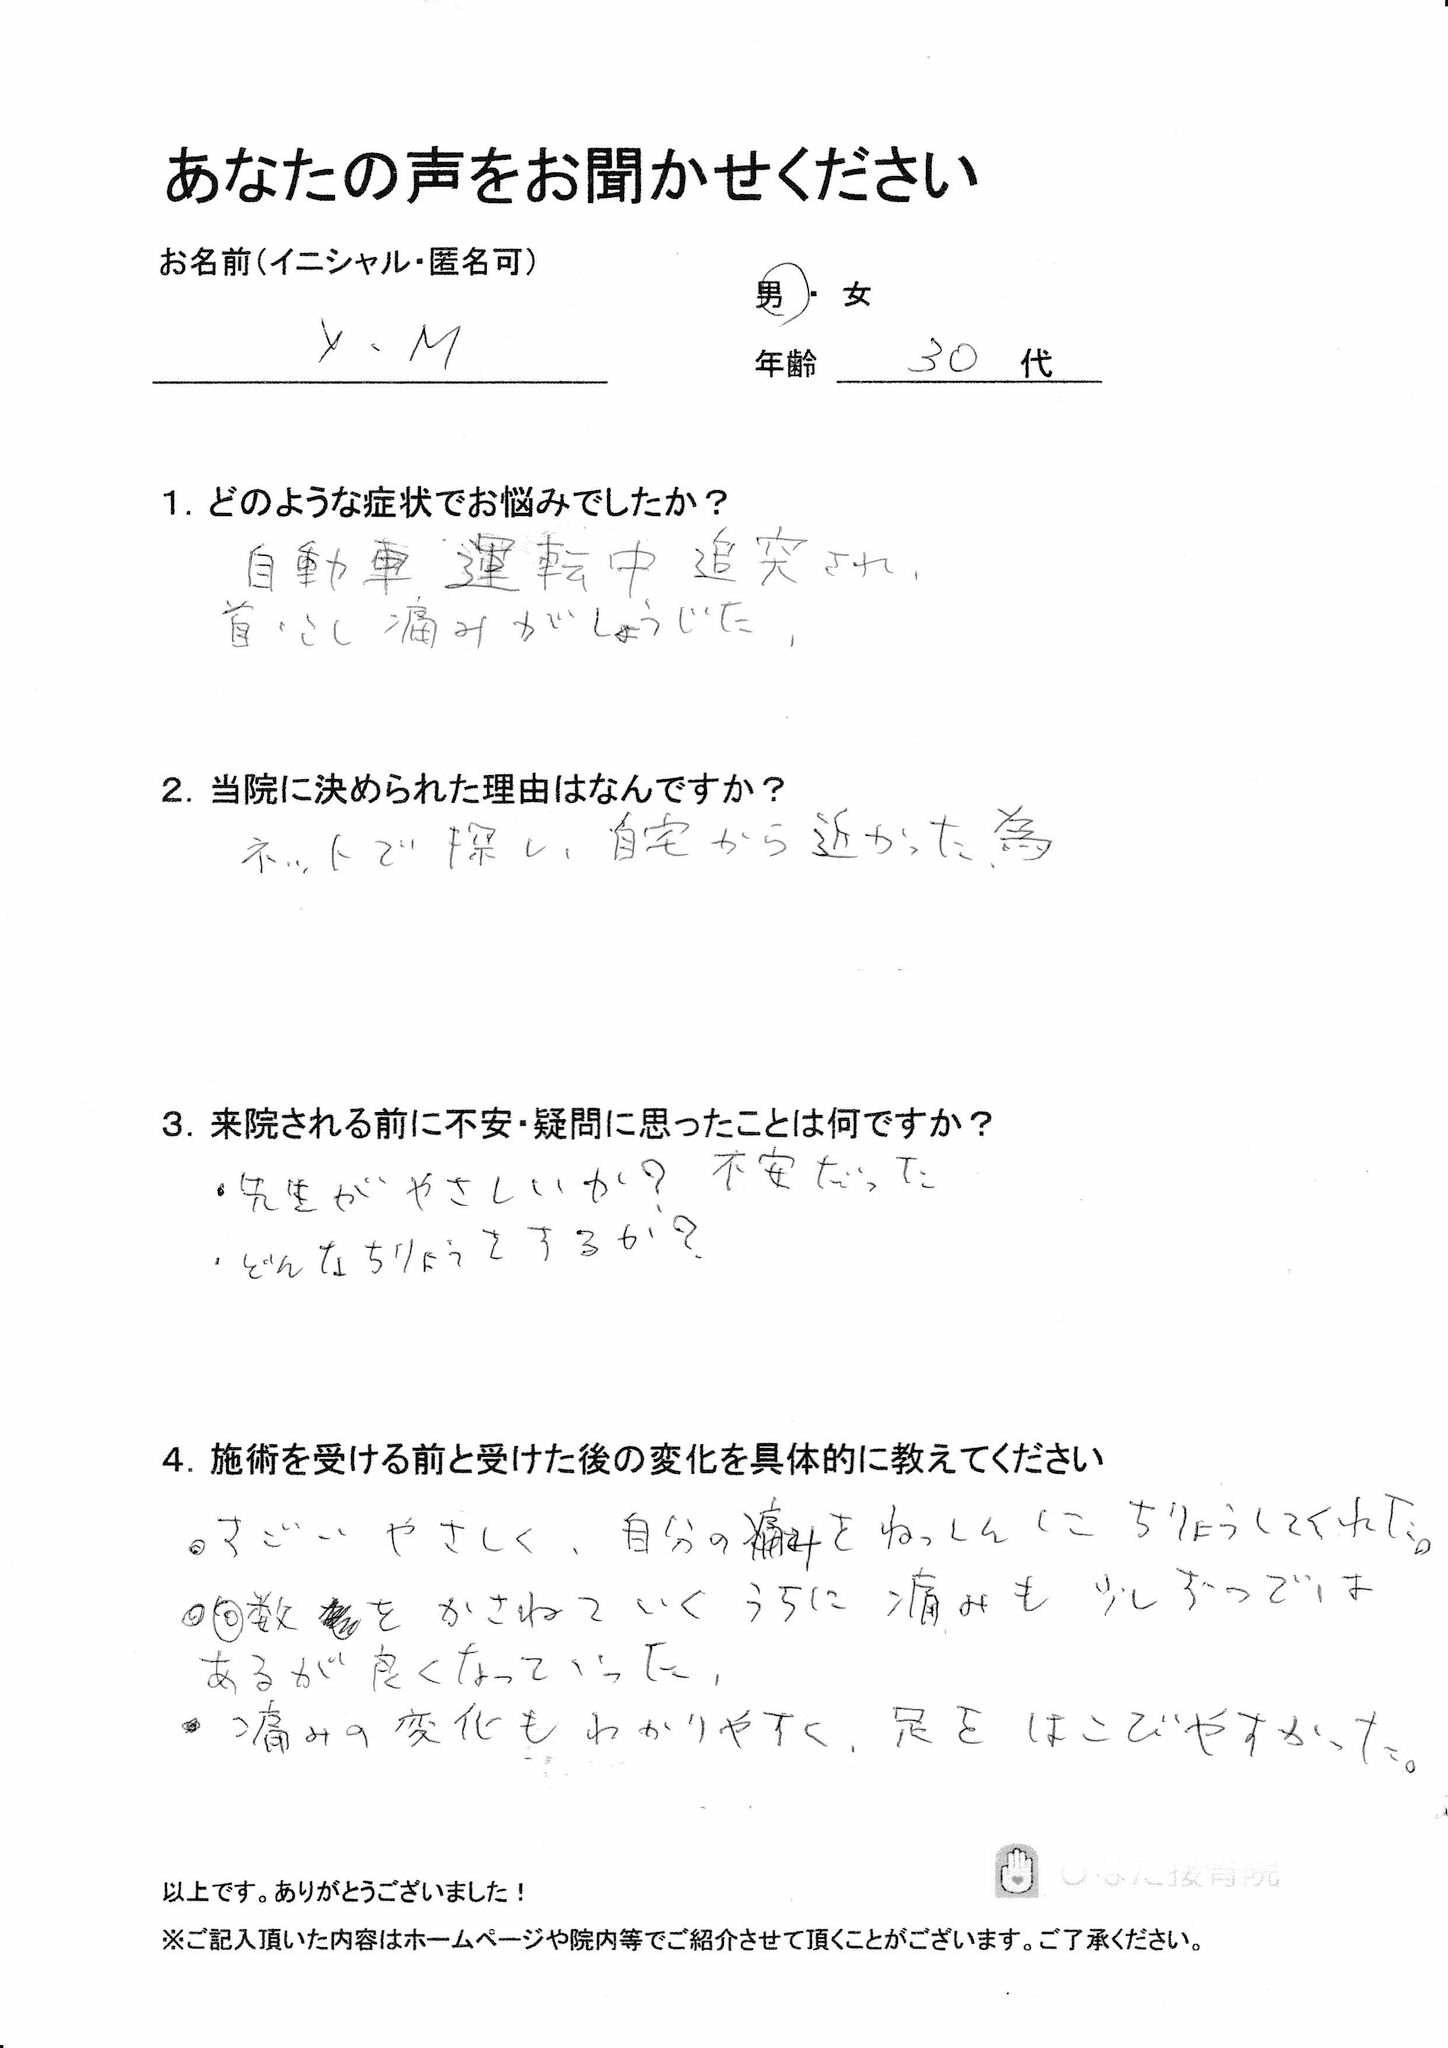 あなたの声をお聞かせください
お名前（イニシャル・匿名可）
男・女
Y.M
年齢 30 代
1. どのような症状でお悩みでしたか？
自動車運転中追突され、
首、こし痛みがしょうじた、
2. 当院に決められた理由はなんですか？
ネットで探し、自宅から近かった為
3. 来院される前に不安・疑問に思ったことは何ですか？
・先生がやさしいか？不安だった
・どんなちりょうをするか？
4. 施術を受ける前と受けた後の変化を具体的に教えてください
・すごいやさしく、自分の痛みをねっしんにちりょうしてくれた。
・回数をかさねていくうちに痛みも少しずつでは
あるが良くなっていった、
・痛みの変化もわかりやすく、足をはこびやすかった。
ひなた接骨院
以上です。ありがとうございました！
※ご記入頂いた内容はホームページや院内等でご紹介させて頂くことがございます。ご了承ください。